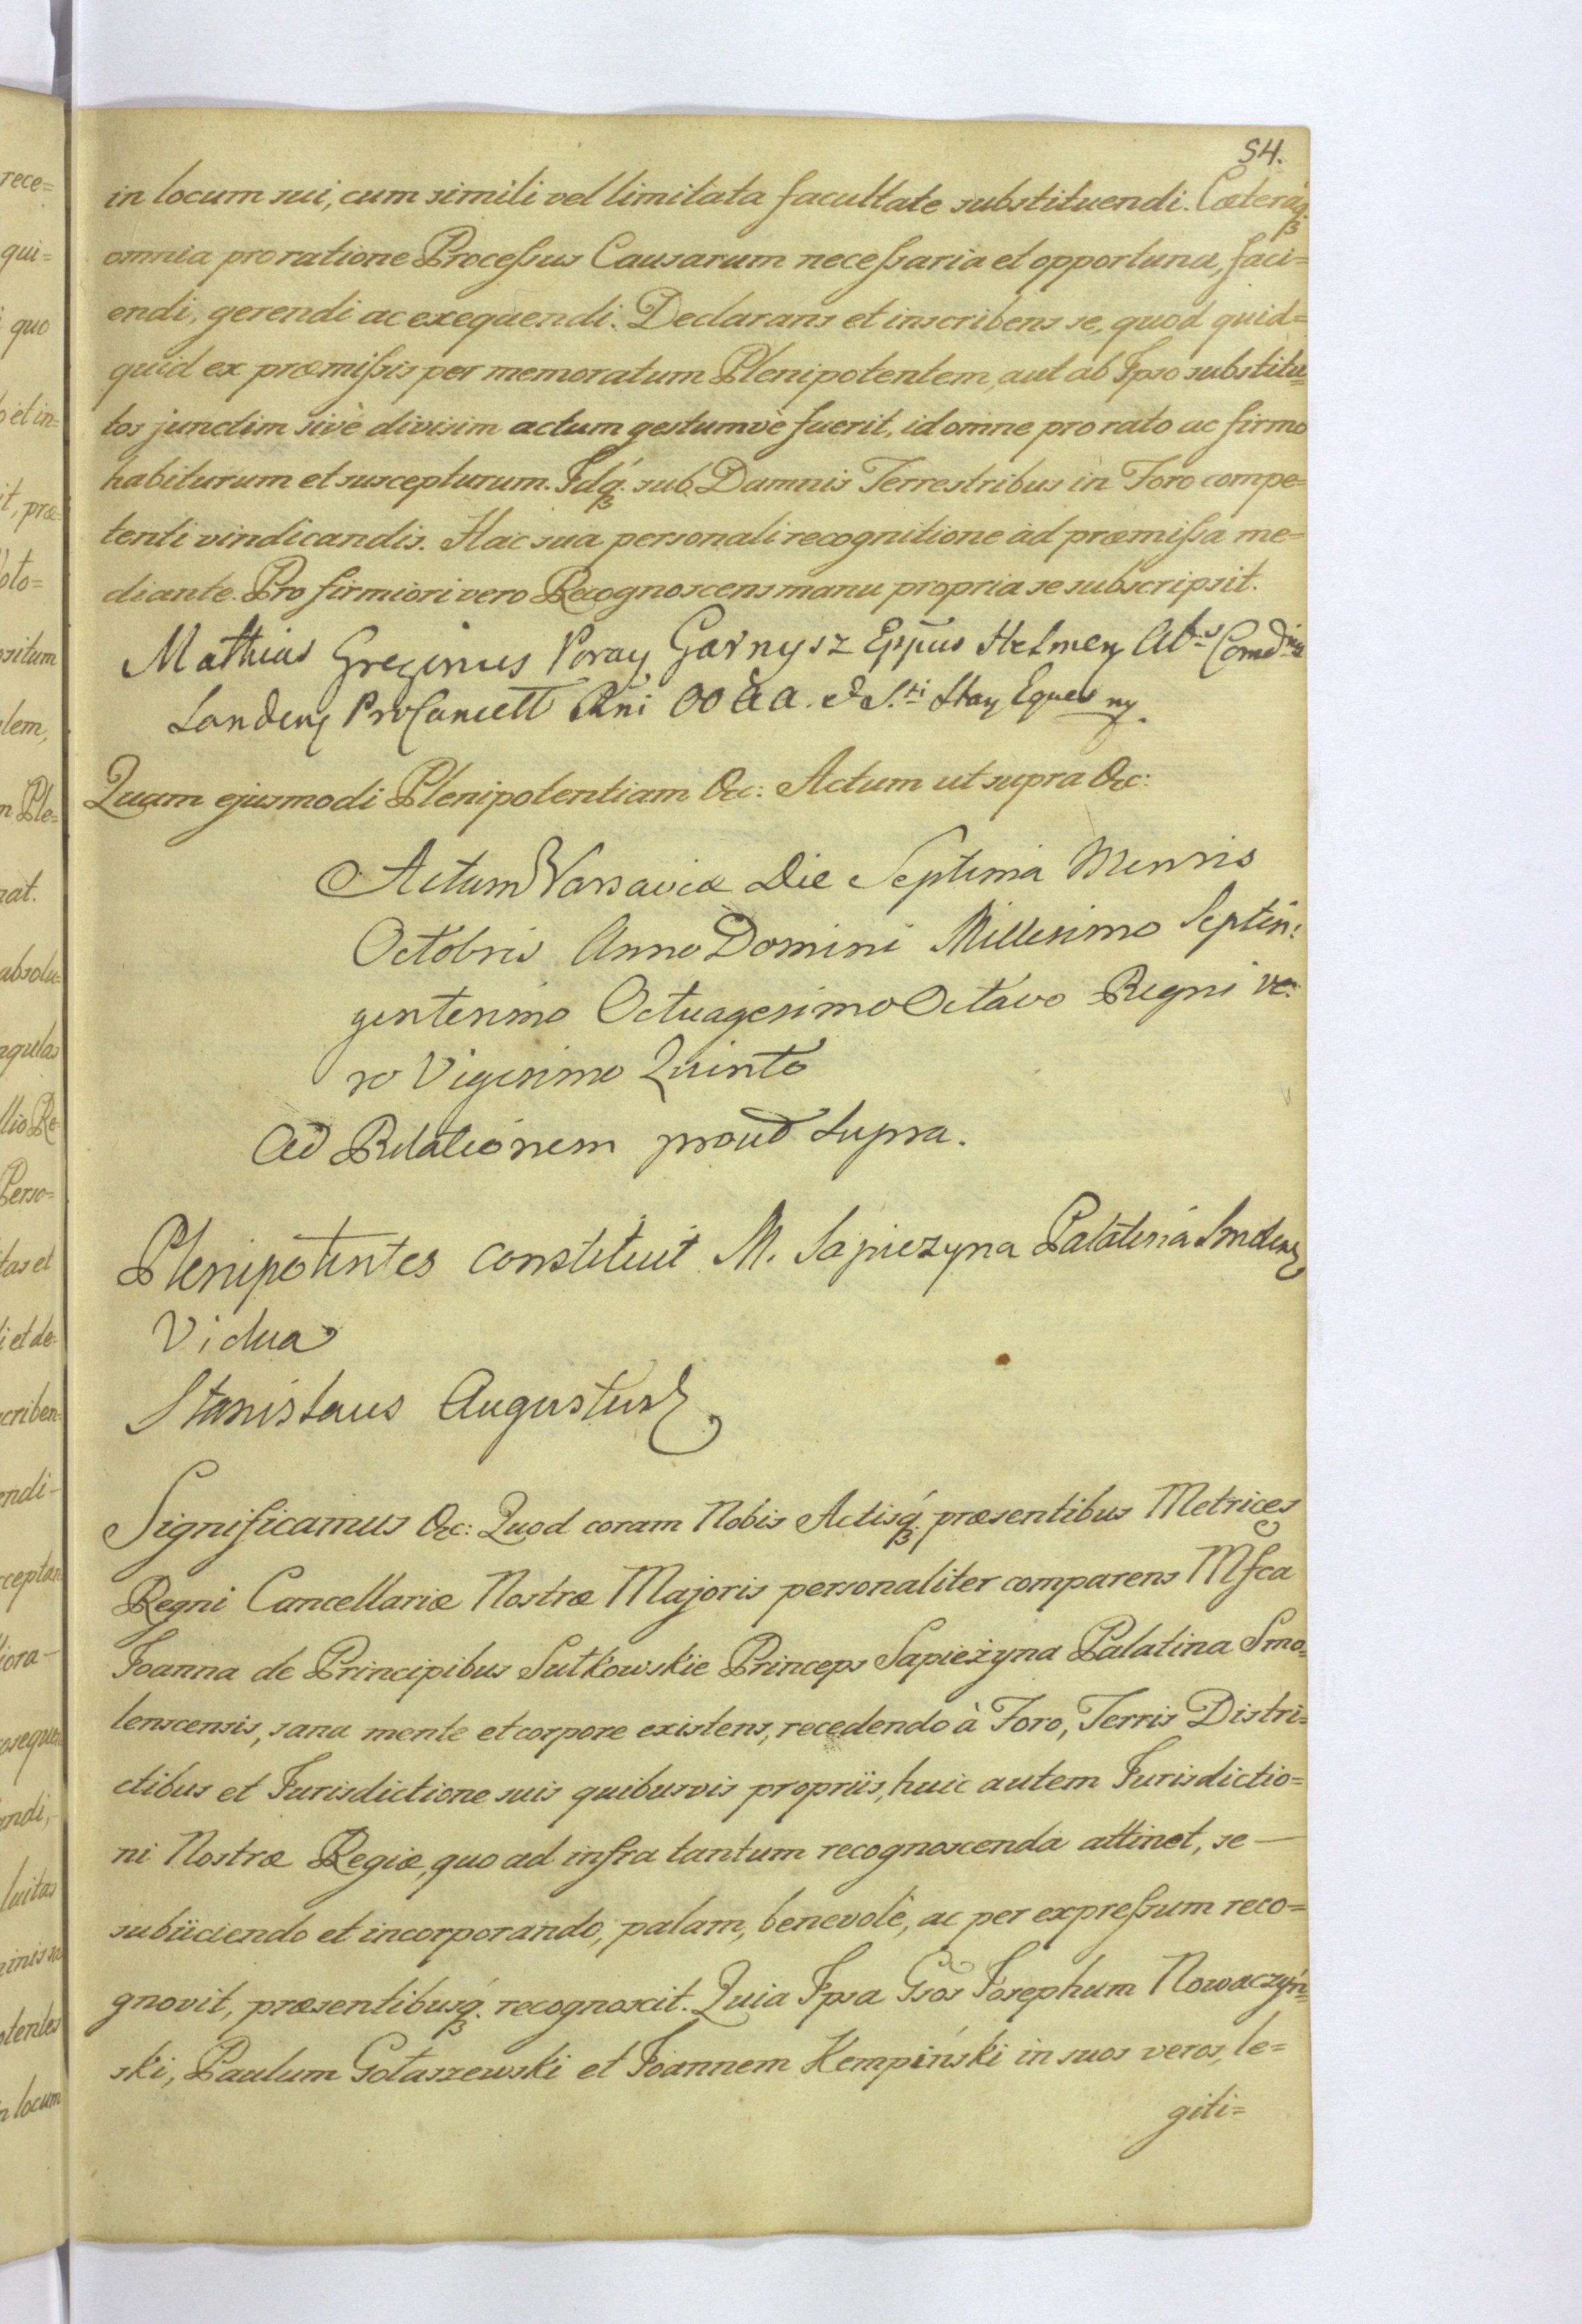 54.
in locum sui, cum simili vel limitata facultate substituendi. Cæteraq́ʒ
omnia pro ratione Processus Causarum necessaria et opportuna, faci=
endi, gerendi ac exequendi. Declarans et inscribens se, quod quid=
quid ex præmissis per memoratum Plenipotentem, aut ab Ipso substitu=
tos junctim sivè divisim actum gestumvè fuerit, id omne pro rato ac firmo
habiturum et suscepturum. Idq́ʒ sub Damnis Terrestribus in Foro compe=
tenti vindicandis. Hac sua personali recognitione ad præmissa me=
diante. Pro firmiori vero Recognoscens manu propria se subscripsit.
Mathias Poray Garnysz Eppus
Actum Varsaviæ Die Septima Mensis
Quam ejusmodi Plenipotentiam &c: Actum ut supra &c:
Octobris Anno Domini Millesimo Septin:
gentesimo Octuagesimo Octavo Regni ve:
ro Vigesimo Quinto
Ad Relationem prout supra.
Plenipotentes constituit M. Sapiezyna Palatina
Vidua
Stanislaus Augustus
Significamus &c: Quod coram Nobis Actisq́ʒ præsentibus Metrices
Regni Cancellariæ Nostræ Majoris personaliter comparens Mfca
Joanna de Principibus Sułkowskie Princeps Sapieżyna Palatina Smo=
lenscensis, sana mente et corpore existens, recedendo à Foro, Terris Distri=
ctibus et Jurisdictione suis quibusvis propriis, huic autem Jurisdictio=
ni Nostræ Regiæ, quo ad infra tantum recognoscenda attinet, se —
subiiciendo et incorporando, palam, benevolè, ac per expressum reco=
gnovit, præsentibusq́ʒ recognoscit. Quia Ipsa Gsos Josephum Nowaczyń=
ski, Paulum Gołaszewski et Joannem Kempiński in suos veros, le=
giti=